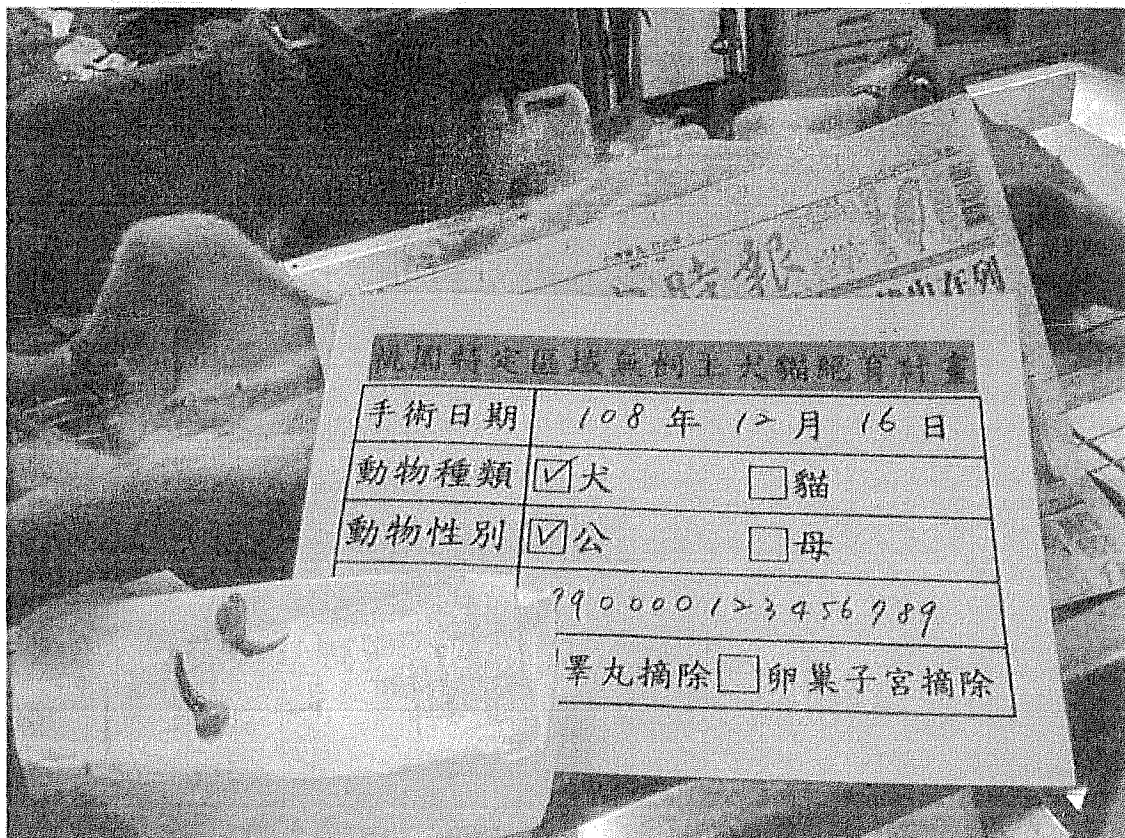 時報
出在列
桃園特定區域無飼主犬貓絕育計畫
手術日期 108年 12月 16日
動物種類 ☑犬 ☐貓
動物性別 ☑公 ☐母
990000123456789
睪丸摘除 ☐卵巢子宮摘除